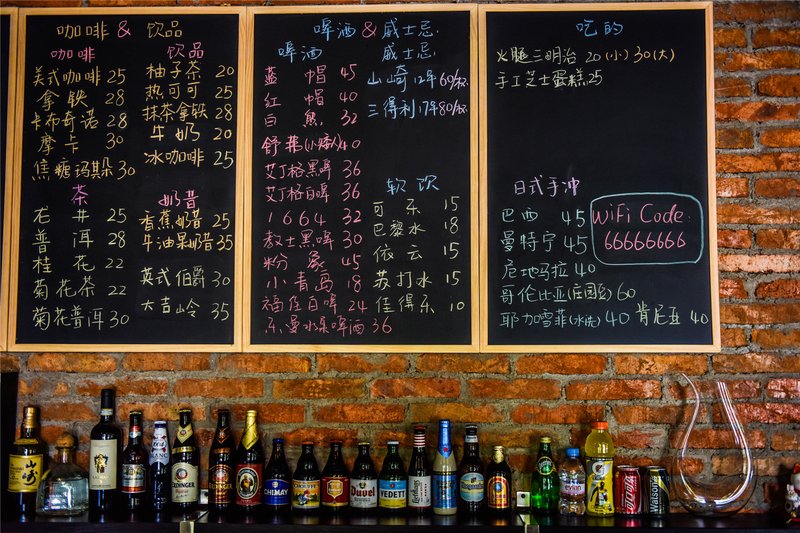 咖啡 & 饮品
咖啡
美式咖啡 25
拿铁 28
卡布奇诺 28
摩卡 30
焦糖玛朵 30
饮品
柚子茶 20
热可可 25
抹茶拿铁 28
牛奶 20
冰咖啡 25
茶
龙井 25
普洱 28
桂花 22
菊花茶 22
菊花普洱 30
奶昔
香蕉奶昔 25
牛油果奶昔 35
英式伯爵 30
大吉岭 35
啤酒 & 威士忌
啤酒
蓝帽 45
红帽 40
白熊 32
舒弗(小矮人) 40
艾丁格黑啤 36
艾丁格白啤 36
1664 32
教士黑啤 30
粉象 45
小青岛 18
福佳白啤 24
乐曼水果啤酒 36
威士忌
山崎12年 60/杯
三得利17年 80/杯
软饮
可乐 15
巴黎水 18
依云 15
苏打水 15
佳得乐 10
吃的
火腿三明治 20(小) 30(大)
手工芝士蛋糕 25
日式手冲
巴西 45
曼特宁 45
危地马拉 40
哥伦比亚(庄园) 60
耶加雪菲(水洗) 40 肯尼亚 40
WiFi Code:
66666666
山崎
CHIMAY
Duvel
VEDETT
Coca-Cola
Watsons